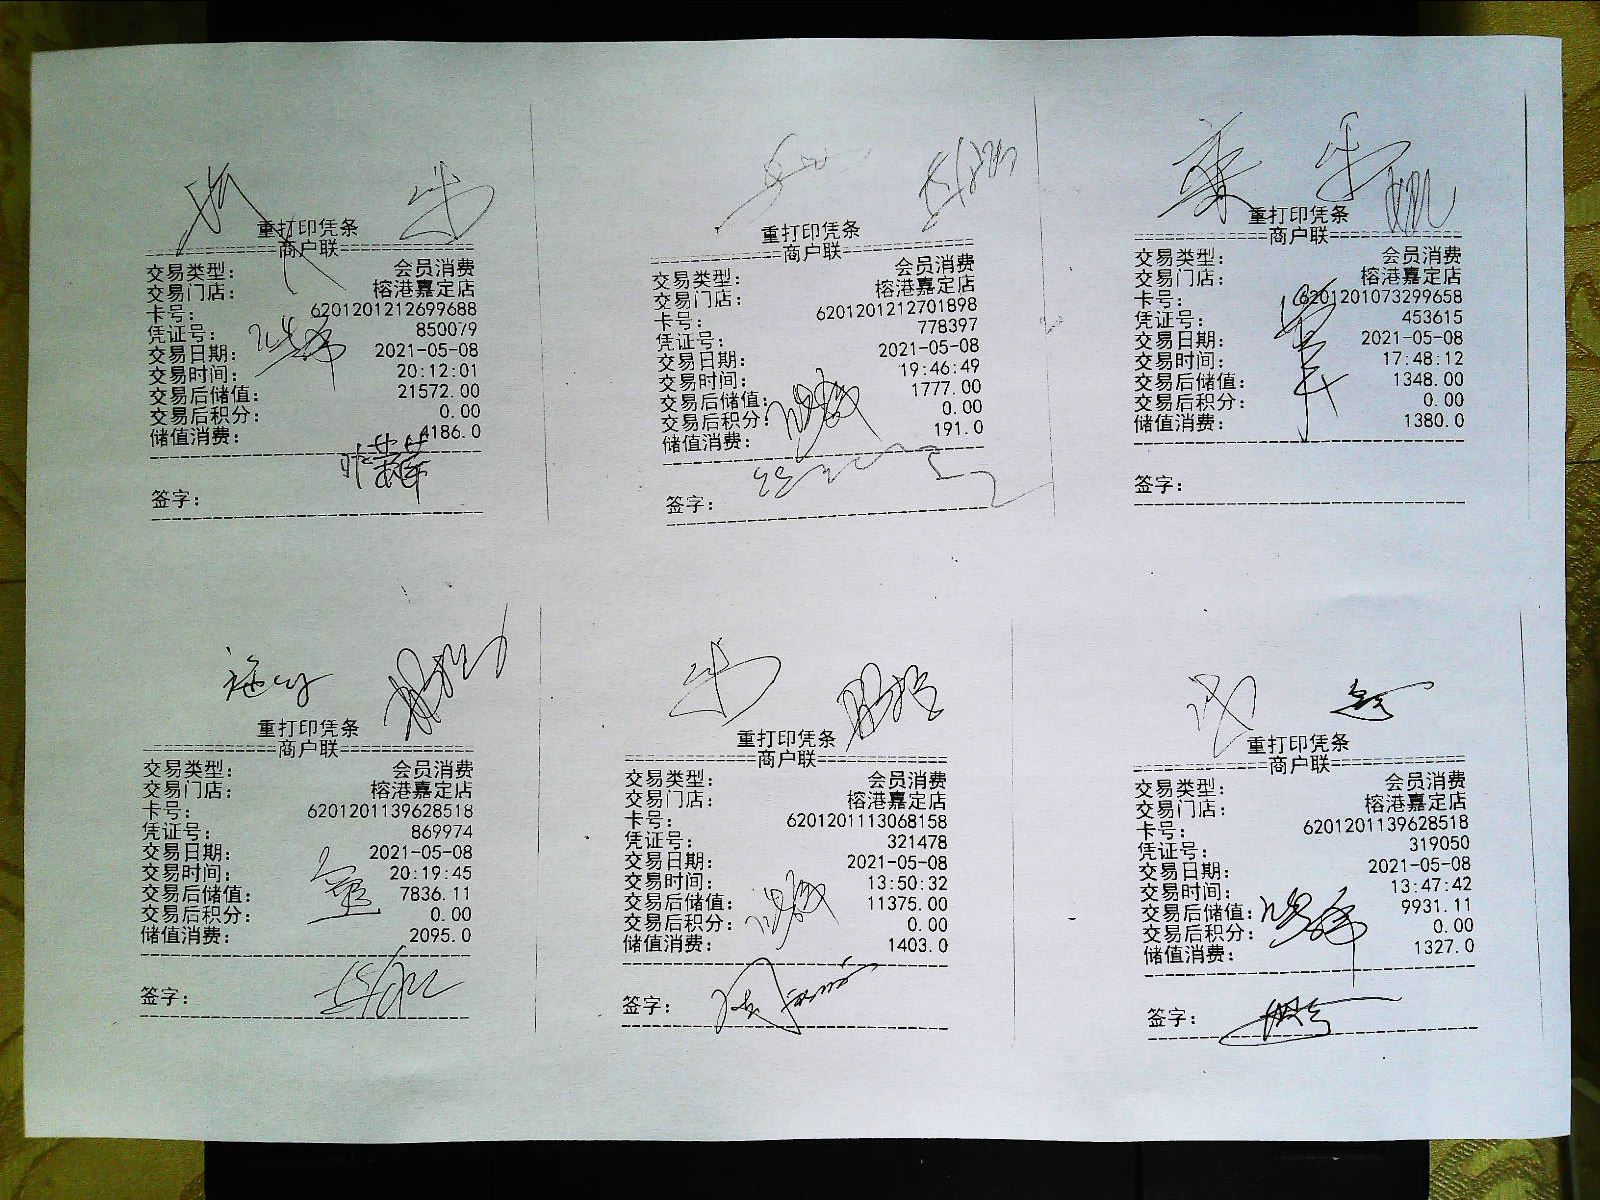 重打印凭条
商户联
交易类型: 会员消费
交易门店: 榕港嘉定店
卡号: 6201201212699688
凭证号: 850079
交易日期: 2021-05-08
交易时间: 20:12:01
交易后储值: 21572.00
交易后积分: 0.00
储值消费: 4186.0
签字:
重打印凭条
商户联
交易类型: 会员消费
交易门店: 榕港嘉定店
卡号: 6201201212701898
凭证号: 778397
交易日期: 2021-05-08
交易时间: 19:46:49
交易后储值: 1777.00
交易后积分: 0.00
储值消费: 191.0
签字:
重打印凭条
商户联
交易类型: 会员消费
交易门店: 榕港嘉定店
卡号: 6201201073299658
凭证号: 453615
交易日期: 2021-05-08
交易时间: 17:48:12
交易后储值: 1348.00
交易后积分: 0.00
储值消费: 1380.0
签字:
重打印凭条
商户联
交易类型: 会员消费
交易门店: 榕港嘉定店
卡号: 6201201139628518
凭证号: 869974
交易日期: 2021-05-08
交易时间: 20:19:45
交易后储值: 7836.11
交易后积分: 0.00
储值消费: 2095.0
签字:
重打印凭条
商户联
交易类型: 会员消费
交易门店: 榕港嘉定店
卡号: 6201201113068158
凭证号: 321478
交易日期: 2021-05-08
交易时间: 13:50:32
交易后储值: 11375.00
交易后积分: 0.00
储值消费: 1403.0
签字:
重打印凭条
商户联
交易类型: 会员消费
交易门店: 榕港嘉定店
卡号: 6201201139628518
凭证号: 319050
交易日期: 2021-05-08
交易时间: 13:47:42
交易后储值: 9931.11
交易后积分: 0.00
储值消费: 1327.0
签字: